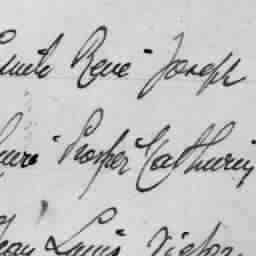 Emile René Joseph
Prosper Mathurin
Jean Louis Victor